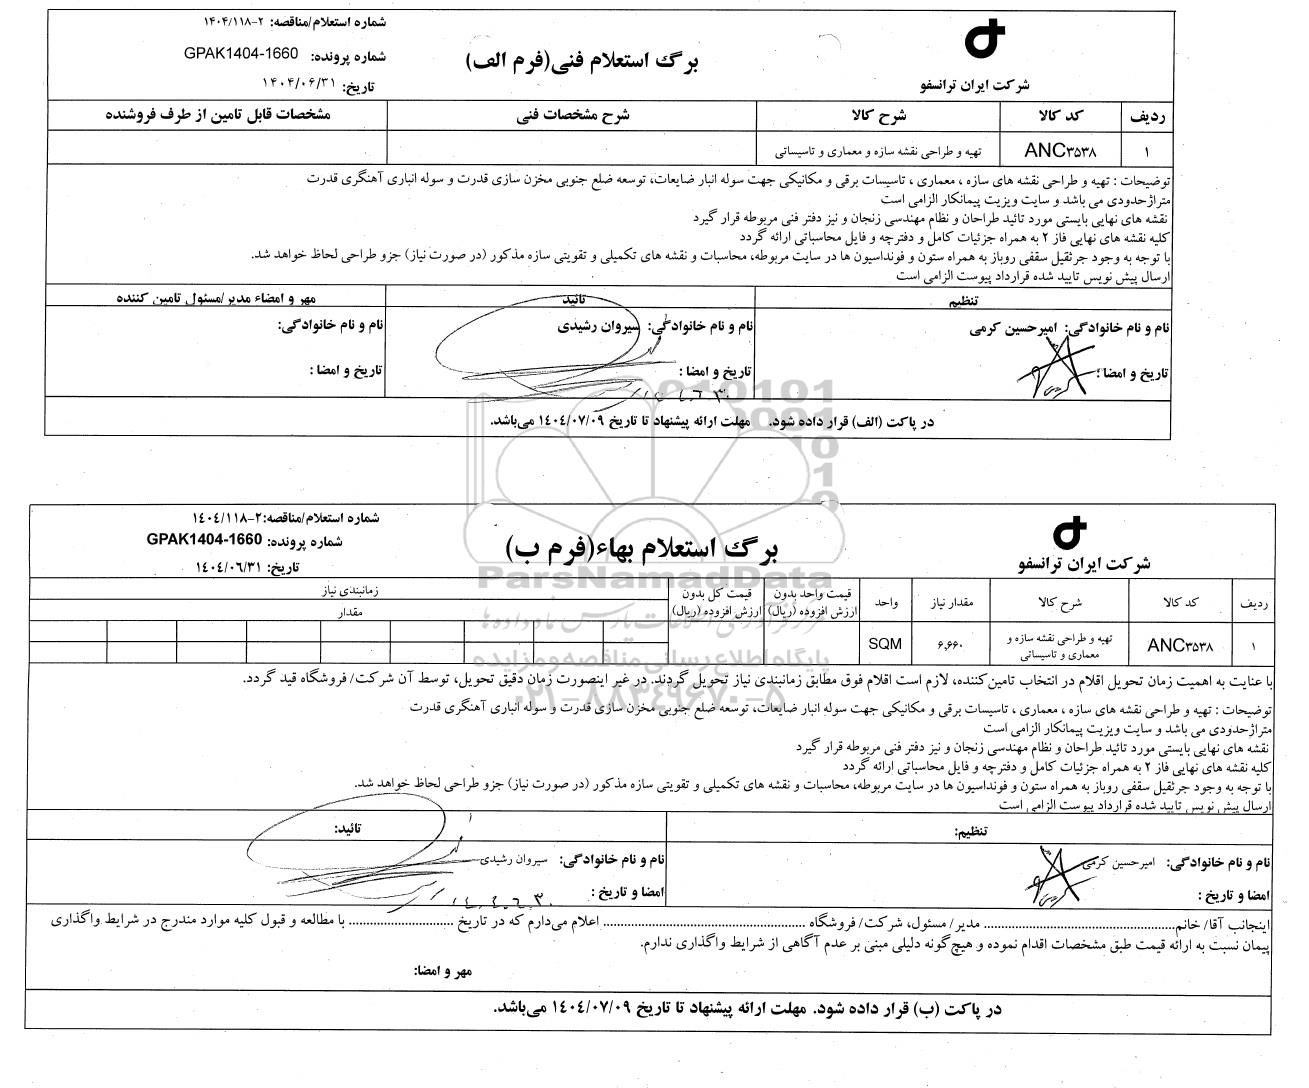 شماره استعلام/مناقصه: ۲-۱۴۰۴/۱۱۸
برگ استعلام فنی(فرم الف)
شماره پرونده: GPAK1404-1660
تاریخ: ۱۴۰۴/۰۶/۳۱
شرکت ایران ترانسفو
ردیف کد کالا شرح کالا شرح مشخصات فنی مشخصات قابل تامین از طرف فروشنده
۱ ANC۳۵۳۸ تهیه و طراحی نقشه سازه و معماری و تاسیساتی
توضیحات : تهیه و طراحی نقشه های سازه ، معماری ، تاسیسات برقی و مکانیکی جهت سوله انبار ضایعات، توسعه ضلع جنوبی مخزن سازی قدرت و سوله انباری آهنگری قدرت
متراژحدودی می باشد و سایت ویزیت پیمانکار الزامی است
نقشه های نهایی بایستی مورد تائید طراحان و نظام مهندسی زنجان و نیز دفتر فنی مربوطه قرار گیرد
کلیه نقشه های نهایی فاز ۲ به همراه جزئیات کامل و دفترچه و فایل محاسباتی ارائه گردد
با توجه به وجود جرثقیل سقفی روباز به همراه ستون و فونداسیون ها در سایت مربوطه، محاسبات و نقشه های تکمیلی و تقویتی سازه مذکور (در صورت نیاز) جزو طراحی لحاظ خواهد شد.
ارسال پیش نویس تایید شده قرارداد پیوست الزامی است
تنظیم تائید مهر و امضاء مدیر/مسئول تامین کننده
نام و نام خانوادگی: امیرحسین کرمی نام و نام خانوادگی: سیروان رشیدی نام و نام خانوادگی:
تاریخ و امضا : تاریخ و امضا : تاریخ و امضا :
در پاکت (الف) قرار داده شود. مهلت ارائه پیشنهاد تا تاریخ ۱۴۰۴/۰۷/۰۹ می‌باشد.
ParsNamadData
پایگاه اطلاع رسانی مناقصه و مزایده
۰۲۱-۸۸۳۴۹۶۷۰-۵
شماره استعلام/مناقصه:۲-۱۴۰۴/۱۱۸
برگ استعلام بهاء(فرم ب)
شماره پرونده: GPAK1404-1660
شرکت ایران ترانسفو
تاریخ: ۱۴۰۴/۰۶/۳۱
ردیف کد کالا شرح کالا مقدار نیاز واحد قیمت واحد بدون ارزش افزوده (ریال) قیمت کل بدون ارزش افزوده (ریال) زمانبندی نیاز
مقدار
۱ ANC۳۵۳۸ تهیه و طراحی نقشه سازه و معماری و تاسیساتی ۶,۶۶۰ SQM
با عنایت به اهمیت زمان تحویل اقلام در انتخاب تامین‌کننده، لازم است اقلام فوق مطابق زمانبندی نیاز تحویل گردند. در غیر اینصورت زمان دقیق تحویل، توسط آن شرکت/ فروشگاه قید گردد.
توضیحات : تهیه و طراحی نقشه های سازه ، معماری ، تاسیسات برقی و مکانیکی جهت سوله انبار ضایعات، توسعه ضلع جنوبی مخزن سازی قدرت و سوله انباری آهنگری قدرت
متراژحدودی می باشد و سایت ویزیت پیمانکار الزامی است
نقشه های نهایی بایستی مورد تائید طراحان و نظام مهندسی زنجان و نیز دفتر فنی مربوطه قرار گیرد
کلیه نقشه های نهایی فاز ۲ به همراه جزئیات کامل و دفترچه و فایل محاسباتی ارائه گردد
با توجه به وجود جرثقیل سقفی روباز به همراه ستون و فونداسیون ها در سایت مربوطه، محاسبات و نقشه های تکمیلی و تقویتی سازه مذکور (در صورت نیاز) جزو طراحی لحاظ خواهد شد.
ارسال پیش نویس تایید شده قرارداد پیوست الزامی است
تنظیم: تائید:
نام و نام خانوادگی: امیرحسین کرمی نام و نام خانوادگی: سیروان رشیدی
امضا و تاریخ : امضا و تاریخ :
اینجانب آقا/ خانم........................ مدیر/ مسئول، شرکت/ فروشگاه ........................ اعلام می‌دارم که در تاریخ ........................ با مطالعه و قبول کلیه موارد مندرج در شرایط واگذاری
پیمان نسبت به ارائه قیمت طبق مشخصات اقدام نموده و هیچ‌گونه دلیلی مبنی بر عدم آگاهی از شرایط واگذاری ندارم.
مهر و امضا:
در پاکت (ب) قرار داده شود. مهلت ارائه پیشنهاد تا تاریخ ۱۴۰۴/۰۷/۰۹ می‌باشد.